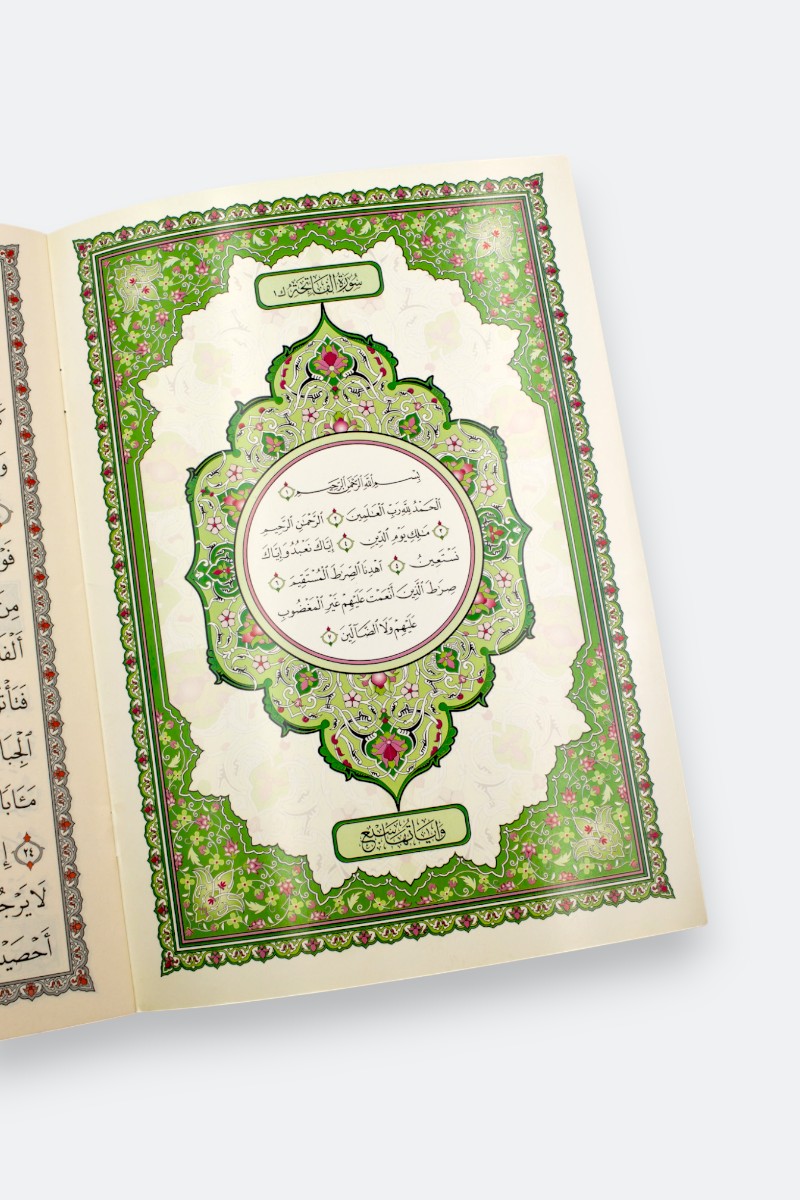 سُورَةُ الْفَاتِحَةِ ك١
بِسْمِ ٱللَّهِ ٱلرَّحْمَٰنِ ٱلرَّحِيمِ ١
ٱلْحَمْدُ لِلَّهِ رَبِّ ٱلْعَٰلَمِينَ ٢ ٱلرَّحْمَٰنِ ٱلرَّحِيمِ
٣ مَٰلِكِ يَوْمِ ٱلدِّينِ ٤ إِيَّاكَ نَعْبُدُ وَإِيَّاكَ
نَسْتَعِينُ ٥ ٱهْدِنَا ٱلصِّرَٰطَ ٱلْمُسْتَقِيمَ ٦
صِرَٰطَ ٱلَّذِينَ أَنْعَمْتَ عَلَيْهِمْ غَيْرِ ٱلْمَغْضُوبِ
عَلَيْهِمْ وَلَا ٱلضَّآلِّينَ ٧
وَآيَاتُهَا سَبْعٌ
وَ
فَوْ
مِنَ
أَلْفَا
فَتَأْتُ
ٱلْجِبَا
مَـَٔابًا
٢٤ إِ
لَا يَرْجُ
أَحْصَيْ